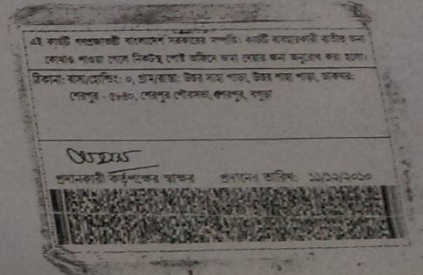 এই কার্ডটি গণপ্রজাতন্ত্রী বাংলাদেশ সরকারের সম্পত্তি। কার্ডটি ব্যবহারকারী ব্যতীত অন্য
কোথাও পাওয়া গেলে নিকটস্থ পোষ্ট অফিসে জমা দেবার জন্য অনুরোধ করা হলো।
ঠিকানা: বাসা/হোল্ডিং: ০, গ্রাম/রাস্তা: উত্তর সাহা পাড়া, উত্তর সাহা পাড়া, ডাকঘর:
শেরপুর - ৫৮৪০, শেরপুর পৌরসভা, শেরপুর, বগুড়া
প্রদানকারী কর্তৃপক্ষের স্বাক্ষর প্রদানের তারিখ: ১১/১২/২০১০